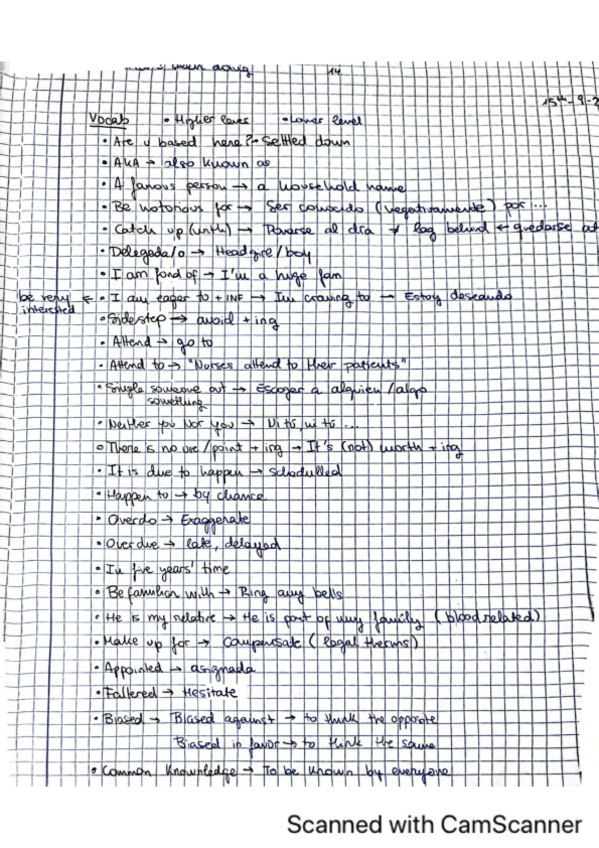 14
15th - 9 - 2
Vocab • Higher level • Lower level
• Are u based here? → Settled down
• AKA → also known as
• A famous person → a household name
• Be notorious for → Ser conocido (negativamente) por ...
• Catch up (with) → Ponerse al día ≠ lag behind ← quedarse at
• Delegada/o → Head girl/boy
• I am fond of → I'm a huge fan
be very interested ← • I am eager to + INF → I'm craving to → Estoy deseando
• Sidestep → avoid + ing
• Attend → go to
• Attend to → "Nurses attend to their patients"
• Single someone out → Escoger a alguien /algo
something
• Neither you Nor you → Ni tú, ni tú ...
• There is no use/point + ing → It's (not) worth + ing
• It is due to happen → schedulled
• Happen to → by chance
• Overdo → Exaggerate
• Overdue → late, delayed
• In five years' time
• Be familiar with → Ring any bells
• He is my relative → He is part of my family (blood related)
• Make up for → Compensate (legal therms)
• Appointed → asignada
• Faltered → Hesitate
• Biased → Biased against → to think the opposite
Biased in favor → to think the same
• Common Knowledge → To be known by everyone
Scanned with CamScanner